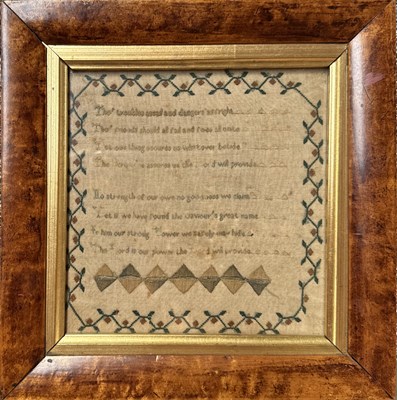 Tho' troubles assail and dangers affright
Tho' friends should all fail and foes all unite
Yet one thing secures us whatever betide
The secures us the Lord will provide
No strength of our own no goodness we claim
Yet we have found the Saviour's great name
In this our strong Tower we safely may hide
The Lord is our power the Lord will provide